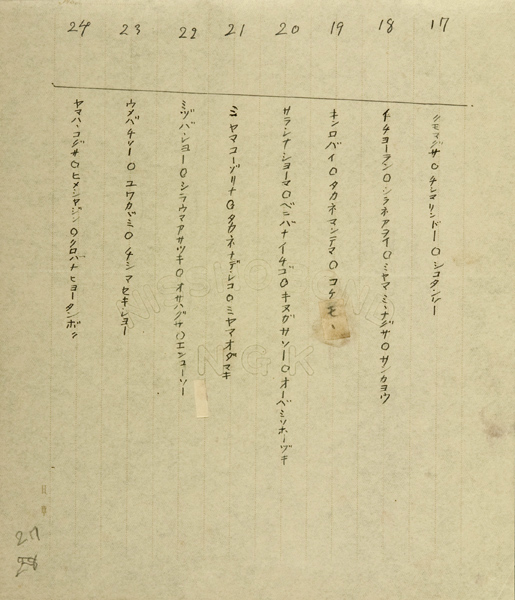 17
クモマグサ〇チシマリンドー〇シコタンソー
18
イチヨーラン〇シラネアヲイ〇ミヤマミヽナグサ〇サンカヨウ
19
キンロバイ〇タカネマンテマ〇コケモヽ
20
サラシナショーマ〇ベニバナイチゴ〇キヌガサソー〇オーベミソホーヅキ
21
ミヤマコーゾリナ〇タカネナデシコ〇ミヤマオダマキ
22
ミヅバショー〇シラウマアサツキ〇オサバグサ〇エンコーソー
23
ウメバチソー〇ユワカガミ〇チシマセキショー
24
ヤマハヽコグサ〇ヒメシャジン〇クロバナヒョータンボク
27
NGK